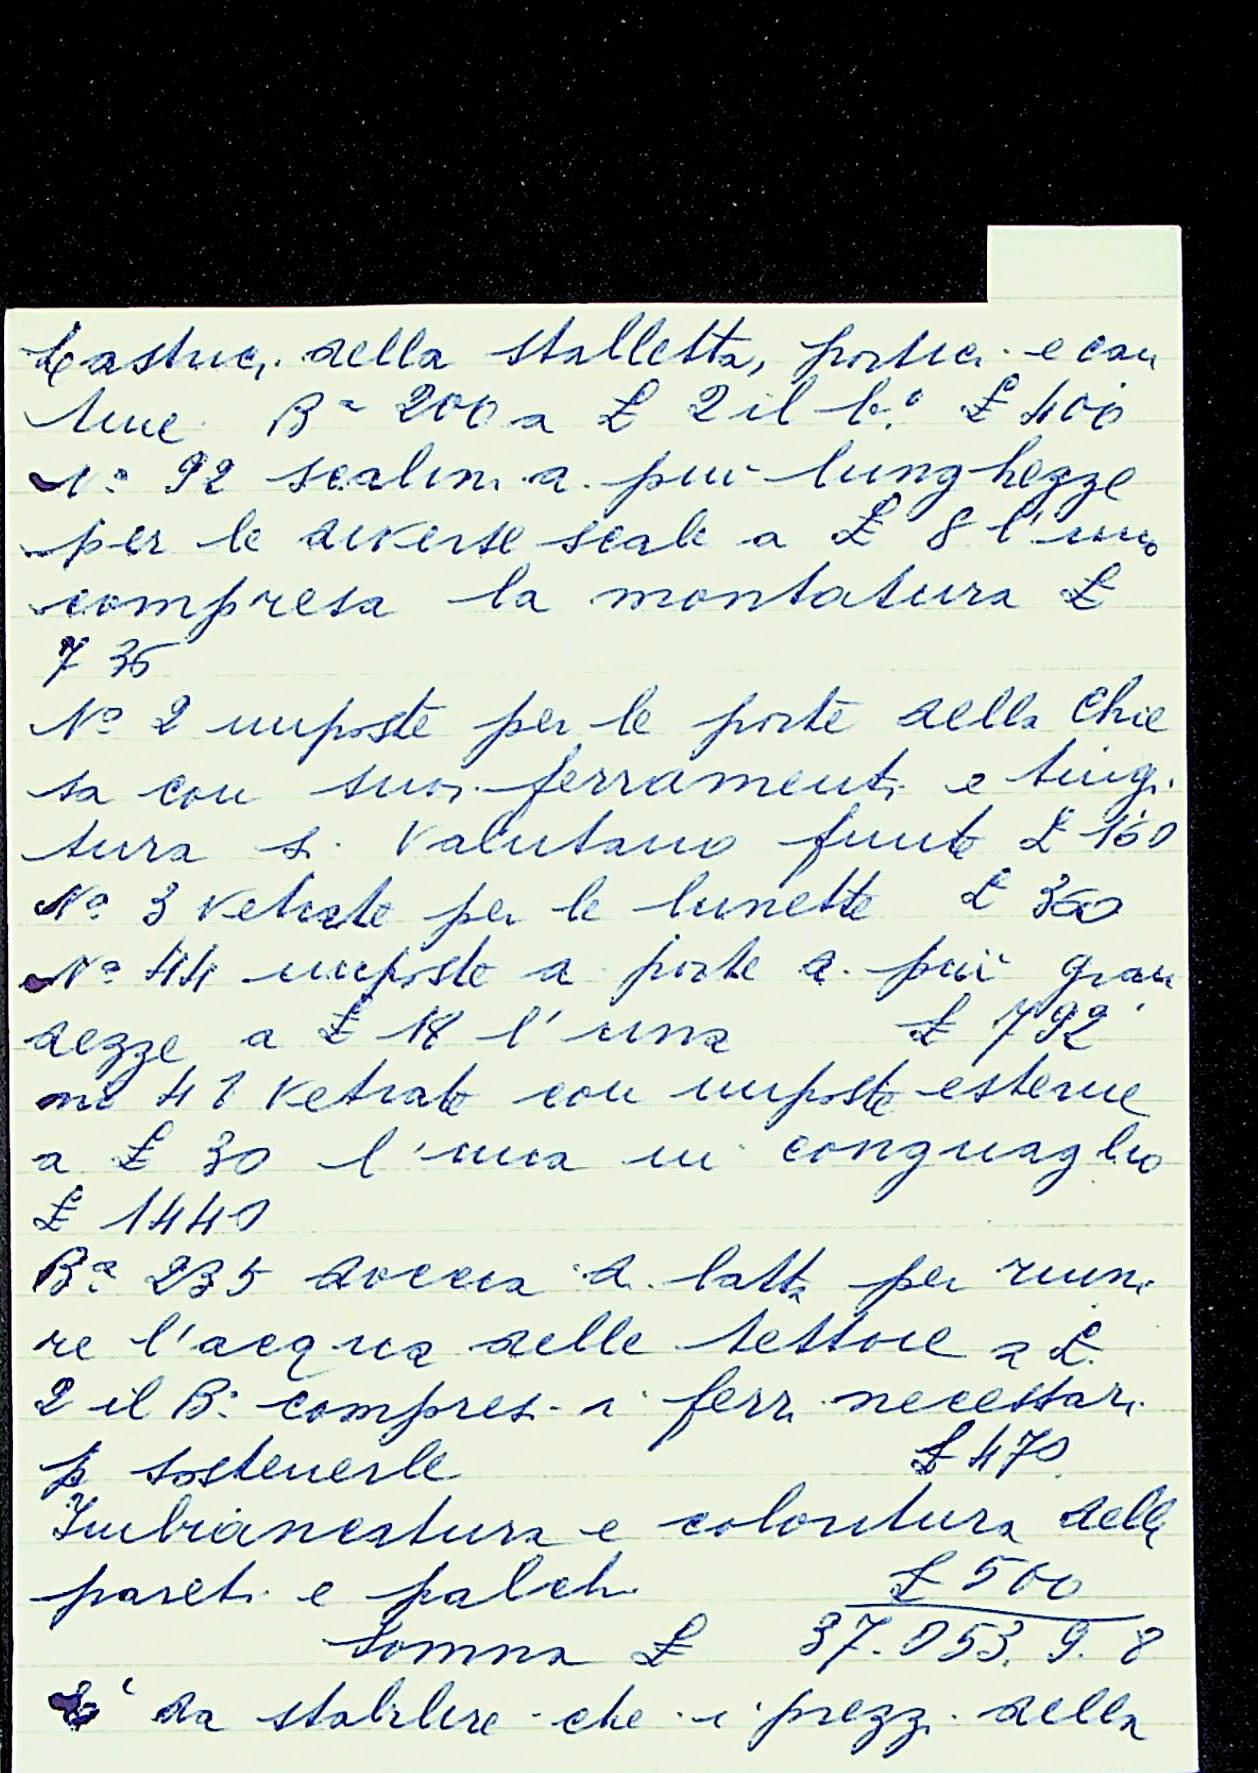 Lastrici della stalletta, portici e can
tine Bª 200 a £ 2 il b.º £ 400
Nº 92 scalini a più lunghezze
per le diverse scale a £ 8 l'uno
compresa la montatura £
736
Nº 2 imposte per le porte della Chie
sa con suoi ferramenti e tingi
tura si valutano finite £ 160
Nº 3 vetrate per le lunette £ 360
Nº 44 imposte a porte a più gran
dezze a £ 18 l'una £ 792
nº 48 vetrate con imposte esterne
a £ 30 l'una in conguaglio
£ 1440
Bª 235 doccia di latta per riuni
re l'acqua delle tettoie a £.
2 il Bº compresi i ferri necessari
p sostenerle £ 470
Imbiancatura e coloritura delle
pareti e palchi £ 500
Somma £ 37.053. 9. 8
E' da stabilire che i prezzi della